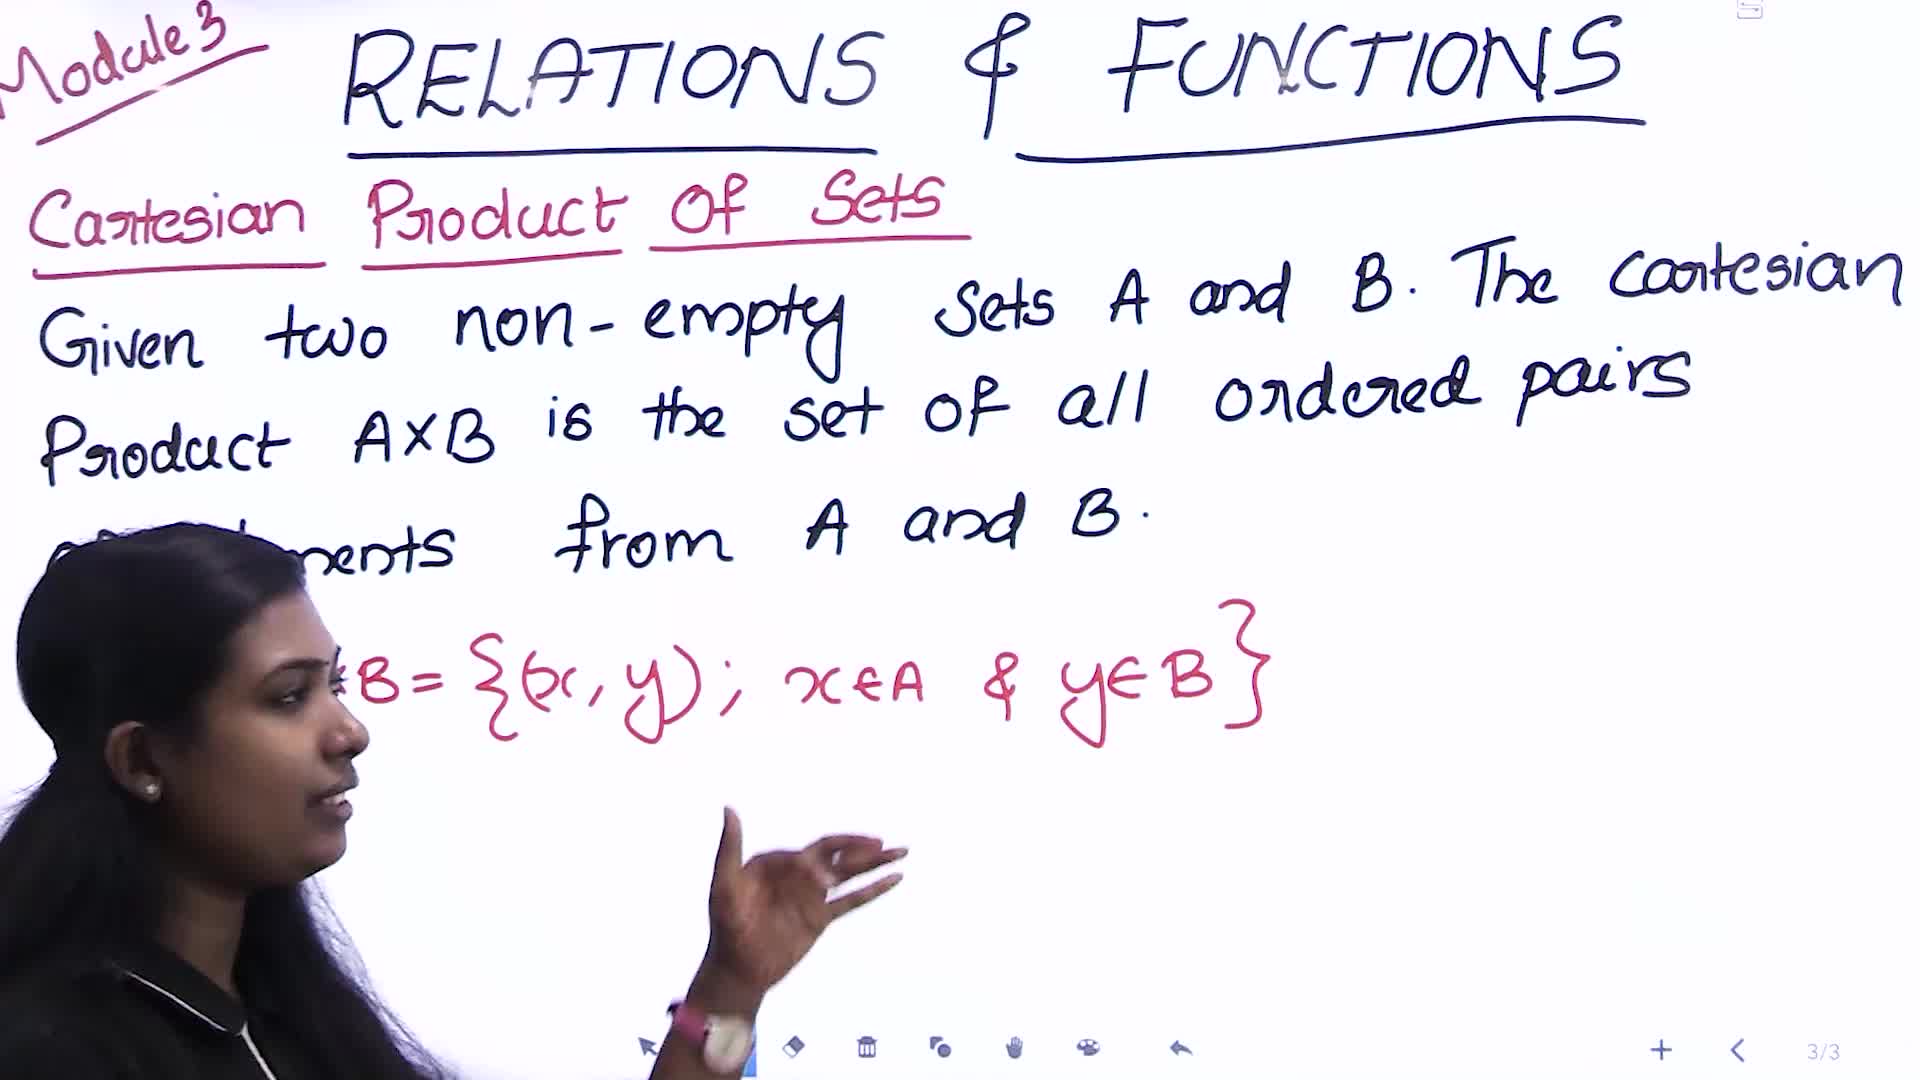 Module 3
RELATIONS & FUNCTIONS
Cartesian Product Of Sets
Given two non-empty sets A and B. The cartesian
Product A×B is the set of all ordered pairs
from A and B.
B = {(x, y); x∈A & y∈B}
3/3